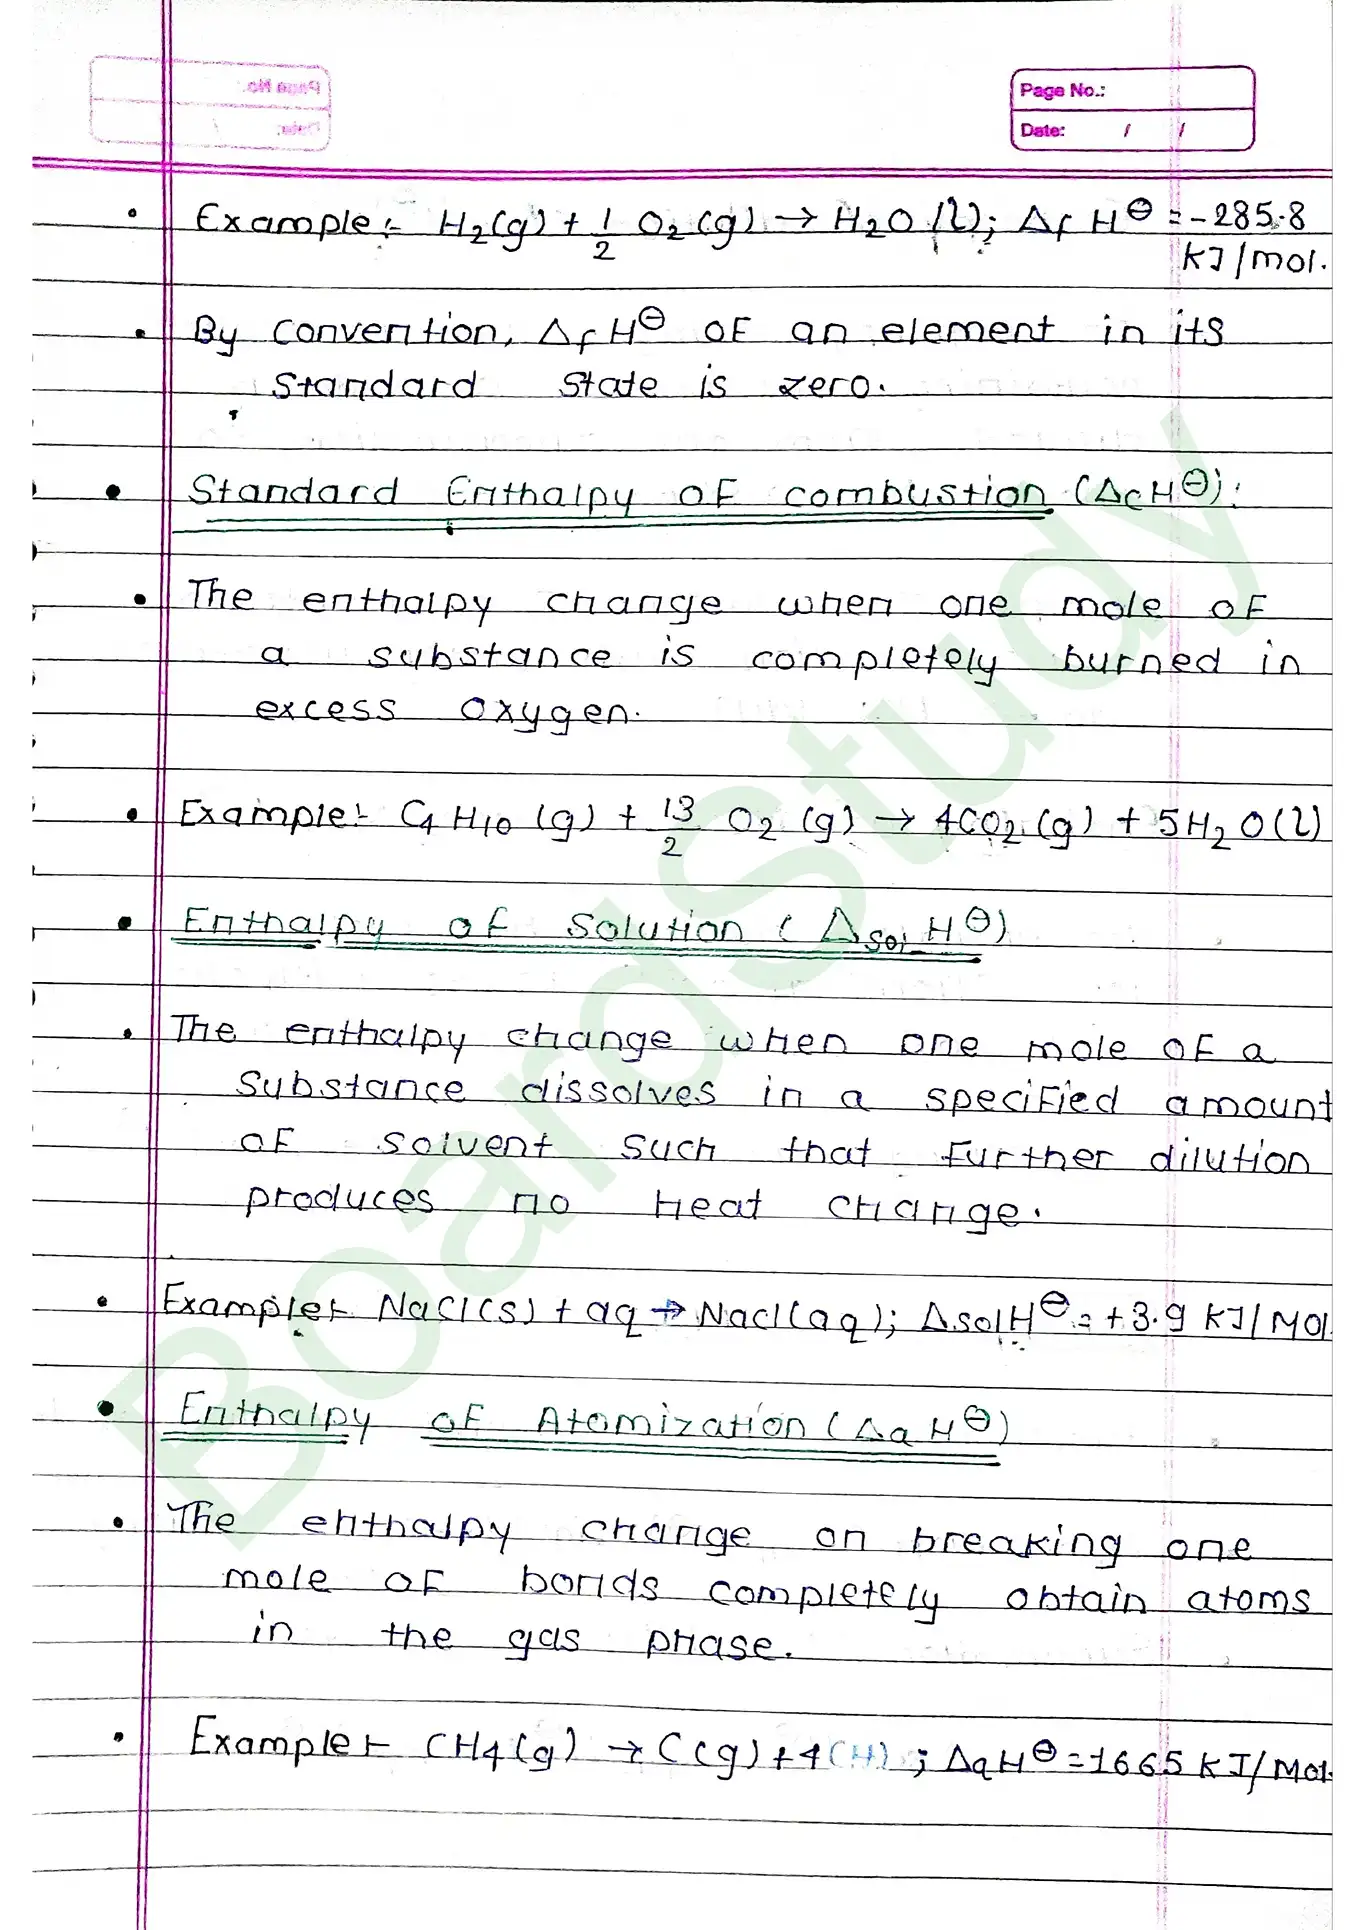 Page No.:
Date: / /
Example:- H₂(g) + 1/2 O₂(g) → H₂O(l); ΔfH⊖ = -285.8
KJ/mol.
By convention, ΔfH⊖ of an element in its
Standard State is zero.
Standard Enthalpy of combustion (ΔcH⊖):
The enthalpy change when one mole of
a substance is completely burned in
excess oxygen.
Example:- C₄H₁₀(g) + 13/2 O₂(g) → 4CO₂(g) + 5H₂O(l)
Enthalpy of Solution (ΔsolH⊖)
The enthalpy change when one mole of a
Substance dissolves in a specified amount
of solvent such that further dilution
produces no heat change.
Example:- NaCl(s) + aq → Nacl(aq); ΔsolH⊖ = +3.9 KJ/MOl
Enthalpy of Atomization (ΔaH⊖)
The enthalpy change on breaking one
mole of bonds completely obtain atoms
in the gas phase.
Example:- CH₄(g) → C(g) + 4(H); ΔaH⊖ = 1665 KJ/Mol.
BoardStudy